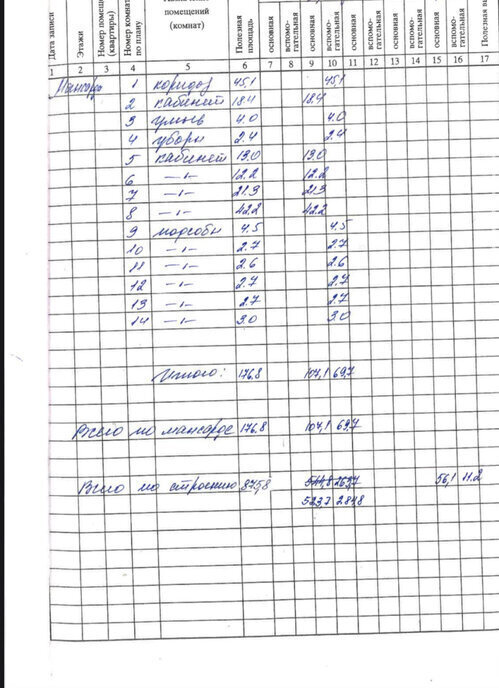 Дата записи
Этажи
Номер помещ
(квартиры)
Номер комнат
по плану
помещений
(комнат)
Полезная
площадь
основная
вспомо-
гательная
основная
вспомо-
гательная
основная
вспомо-
гательная
основная
вспомо-
гательная
основная
вспомо-
гательная
Полезная в
1 2 3 4 5 6 7 8 9 10 11 12 13 14 15 16 17
1 коридор 45,1 45,1
2 кабинет 18.4 18.4
3 умыв 4.0 4.0
4 уборн 2.4 2.4
5 кабинет 13.0 13.0
6 —ı— 12.2 12.2
7 —ı— 21.3 21.3
8 —ı— 42.2 42.2
9 подсобн 4.5 4.5
10 —ı— 2.7 2.7
11 —ı— 2.6 2.6
12 —ı— 2.7 2.7
13 —ı— 2.7 2.7
14 —ı— 3.0 3.0
Итого: 176.8 107,1 69,7
Всего по мансарде 176,8 107,1 69,7
Всего по строению 875,8 56,1 11.2
523,7 284,8